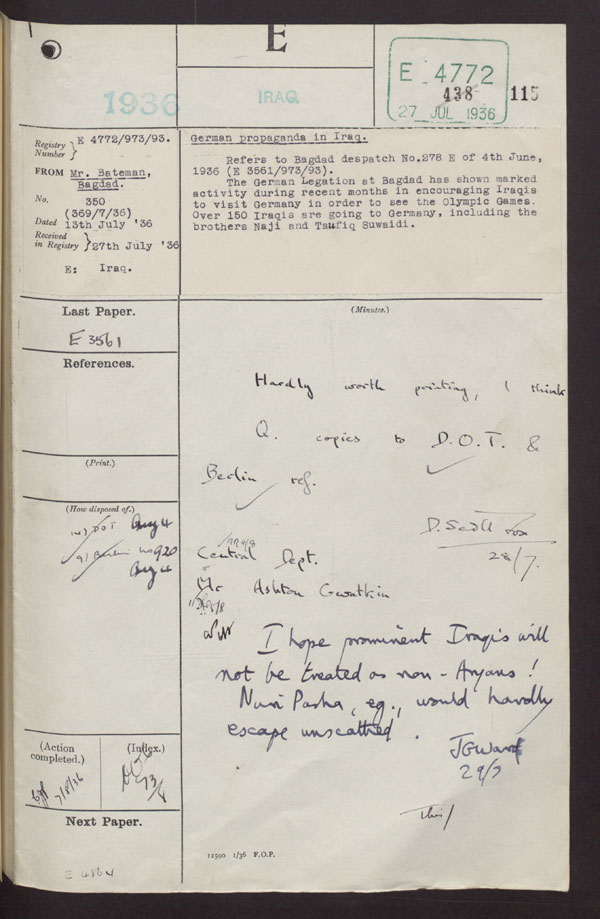 E
1936
IRAQ
E 4772
438
115
27 JUL 1936
Registry Number } E 4772/973/93.
FROM Mr. Bateman,
Bagdad.
No. 350
(369/7/36)
Dated 13th July '36
Received in Registry } 27th July '36
E: Iraq.
German propaganda in Iraq.
Refers to Bagdad despatch No.278 E of 4th June,
1936 (E 3561/973/93).
The German Legation at Bagdad has shown marked
activity during recent months in encouraging Iraqis
to visit Germany in order to see the Olympic Games.
Over 150 Iraqis are going to Germany, including the
brothers Naji and Taufiq Suwaidi.
Last Paper.
E 3561
References.
(Print.)
(How disposed of.)
DOT Aug 4
Berlin No 920
Aug 4
(Action completed.)
7/8/36
(Index.)
Next Paper.
E 4864
(Minutes.)
Hardly worth printing, I think
Q. copies to D.O.T. &
Berlin ref.
D. Scott Fox
28/7.
Central Dept.
Mr Ashton Gwatkin
I hope prominent Iraqis will
not be treated as non-Aryans!
Nuri Pasha, eg., would hardly
escape unscathed.
JGWard
29/7
12590 1/36 F.O.P.